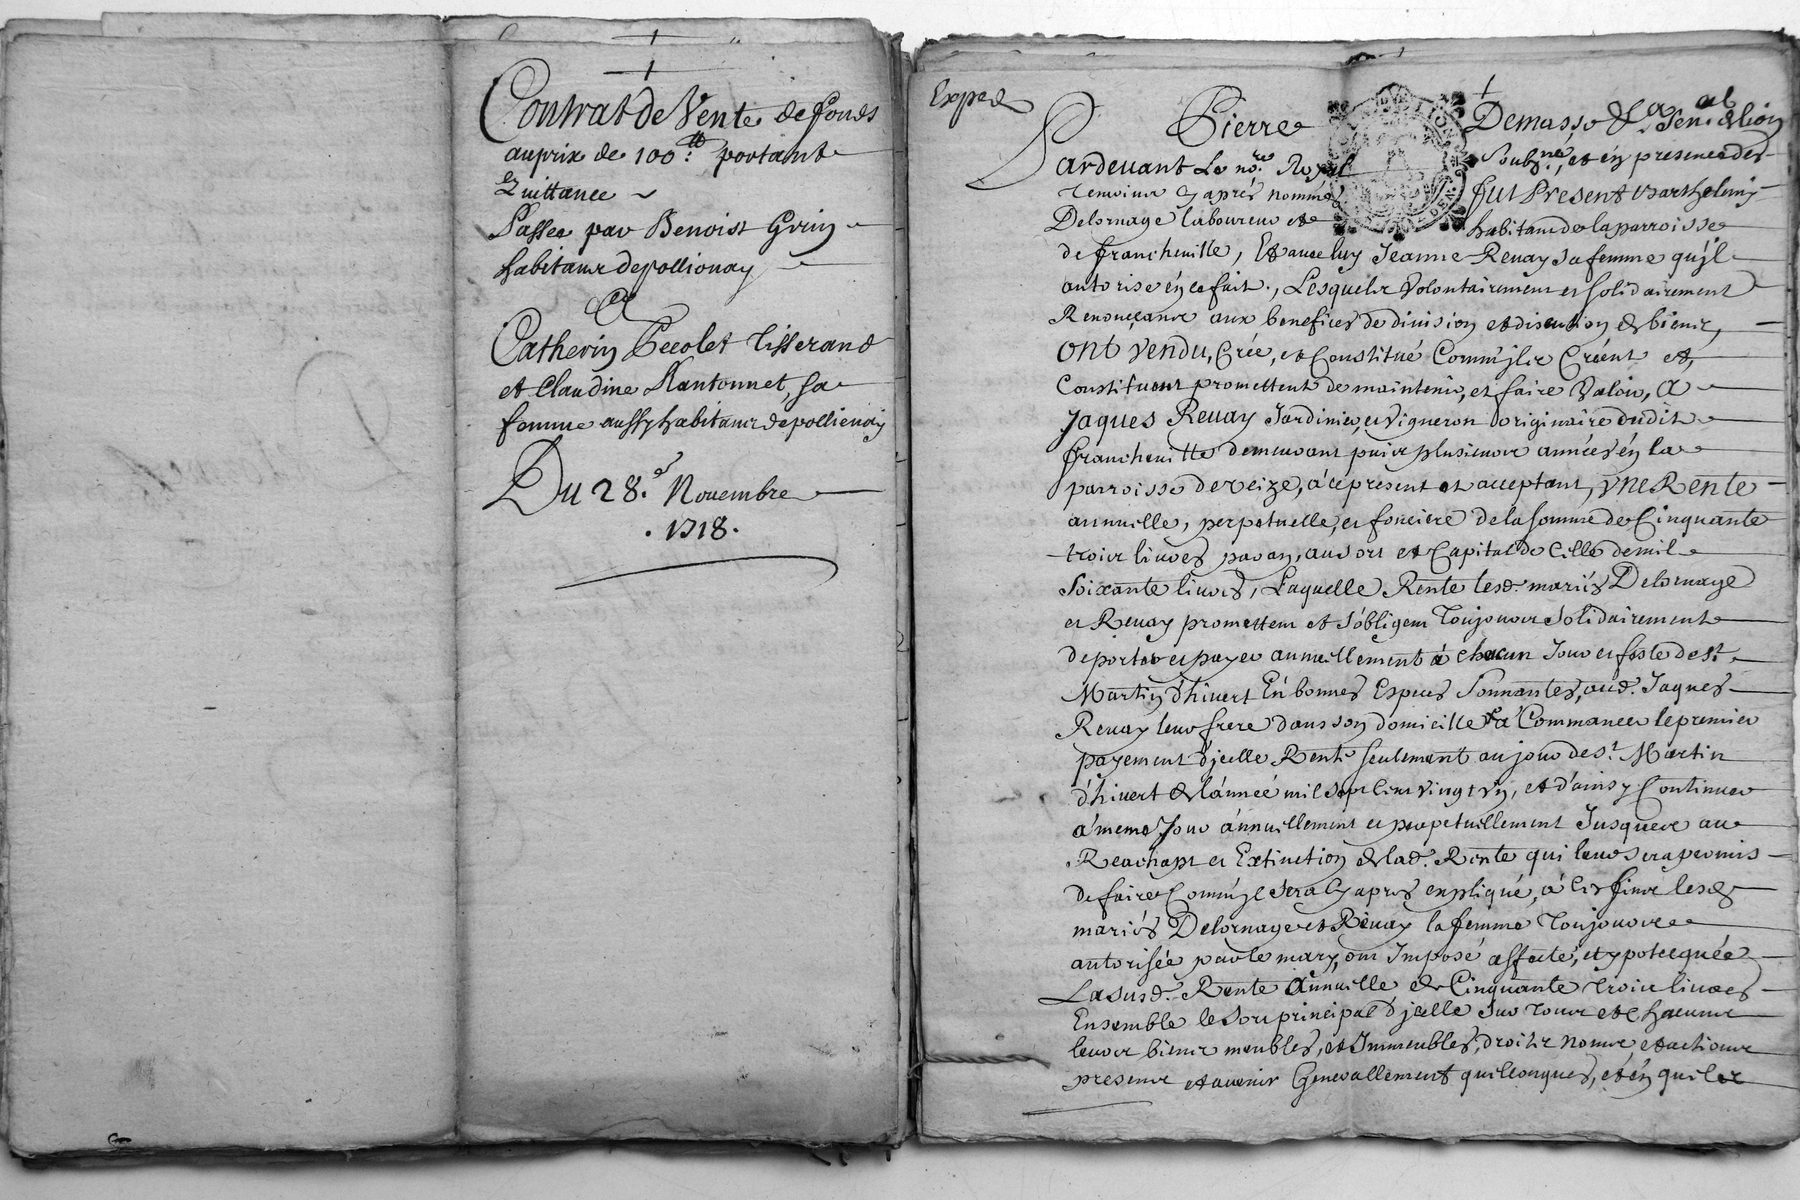 Contrat de Vente de fonds
au prix de 100:tt portant
Quittance
Passee par Benoist Grin
habitant de pollionay
A
Catherin Pecolet tisserand
et Claudine Nantonnet, sa
femme aussy habitans de pollionay
Du 28.e Novembre
. 1718 .
Exped
Pierre Demasso &
Pardevant Le no.re Royal soubz.né, et én presence des
temoins cy aprés nommés fut Present Barthelemy
Delornage laboureur et habitant de la parroisse
de francheuille, Et auec luy Jeanne Reuay sa femme qu'jl
autorise én ce fait, Lesquels Volontairement et solidairement
Renonçants aux benefices de diuision et discution de biens,
ont vendu, Crée, et Constitué Comm'jls Créent et,
Constituent promettent de maintenir, et faire Valoir, A
Jaques Reuay Jardinier, et Vigneron doriginaire dudit
francheuille demeurant puis plusieurs années én la
parroisse de veize, á cé present et acceptant, vne Rente
annuelle, perpetuelle, et fonciere de la somme de Cinquante
trois liures par an, au sort et Capital de Celle de mil
soixante liures, Laquelle Rente lesd. mariés Delornage
et Reuay promettent et s'obligent Toujours solidairement
de porter et payer annuellement á chacun Jour et feste de s.t
Martin d'hiuert En bonnes Especes sonnantes, aud. Jaques
Reuay leur frere dans son domicille á Commancer le premier
payement d'jcelle Rente seulement au jour de s.t Martin
d'hiuert de l'année mil sept Cens vingt vn, et d'ainsy Continuer
á meme Jour ánnuellement et perpetuellement Jusques au
Reachapt et Extinction de lad. Rente qui leur sera permis
de faire Comm'jl sera Cy apres expliqué, á Ces fins lesd
mariés Delornage et Reuay la femme Toujours
autorisée par le mary, ont Imposé affecté, et ypotecquée
La susd. Rente Annuelle de Cinquante Trois liures
Ensemble le sort principal d'jcelle sur Tous et Chacuns
leurs biens meubles, et Immeubles, droits noms et actions
presens et auenir Generallement quelconques, et én quel